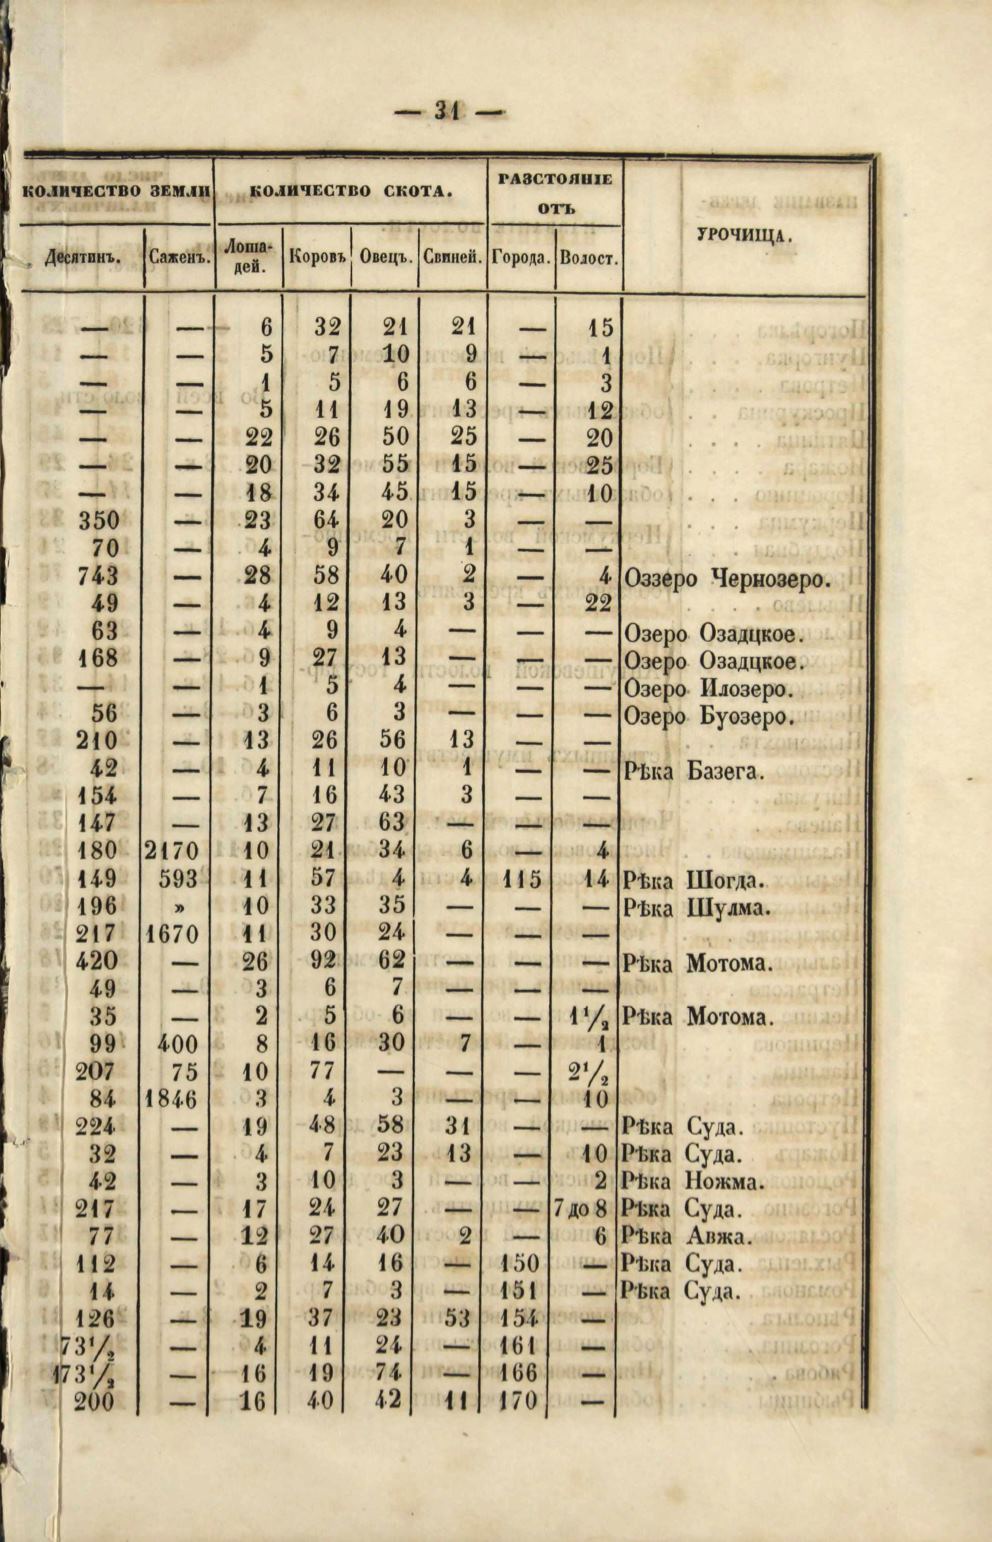 — 31 —
КОЛИЧЕСТВО ЗЕМЛИ КОЛИЧЕСТВО СКОТА. РАЗСТОЯНІЕ ОТЪ УРОЧИЩА.
Десятинъ. Саженъ. Лошадей. Коровъ Овецъ. Свиней. Города. Волост.
— — 6 32 21 21 — 15
— — 5 7 10 9 — 1
— — 1 5 6 6 — 3
— — 5 11 19 13 — 12
— — 22 26 50 25 — 20
— — 20 32 55 15 — 25
— — 18 34 45 15 — 10
350 — 23 64 20 3 — —
70 — 4 9 7 1 — —
743 — 28 58 40 2 — 4 Оззеро Чернозеро.
49 — 4 12 13 3 — 22
63 — 4 9 4 — — — Озеро Озадцкое.
168 — 9 27 13 — — — Озеро Озадцкое.
— — 1 5 4 — — — Озеро Илозеро.
56 — 3 6 3 — — — Озеро Буозеро.
210 — 13 26 56 13 — —
42 — 4 11 10 1 — — Рѣка Базега.
154 — 7 16 43 3 — —
147 — 13 27 63 — — —
180 2170 10 21 34 6 — 4
149 593 11 57 4 4 115 14 Рѣка Шогда.
196 » 10 33 35 — — — Рѣка Шулма.
217 1670 11 30 24 — — —
420 — 26 92 62 — — — Рѣка Мотома.
49 — 3 6 7 — — —
35 — 2 5 6 — — 1½ Рѣка Мотома.
99 400 8 16 30 7 — 1
207 75 10 77 — — — 2½
84 1846 3 4 3 — — 10
224 — 19 48 58 31 — — Рѣка Суда.
32 — 4 7 23 13 — 10 Рѣка Суда.
42 — 3 10 3 — — 2 Рѣка Ножма.
217 — 17 24 27 — — 7 до 8 Рѣка Суда.
77 — 12 27 40 2 — 6 Рѣка Авжа.
112 — 6 14 16 — 150 — Рѣка Суда.
14 — 2 7 3 — 151 — Рѣка Суда.
126 — 19 37 23 53 154 —
73½ — 4 11 24 — 161 —
173½ — 16 19 74 — 166 —
200 — 16 40 42 11 170 —